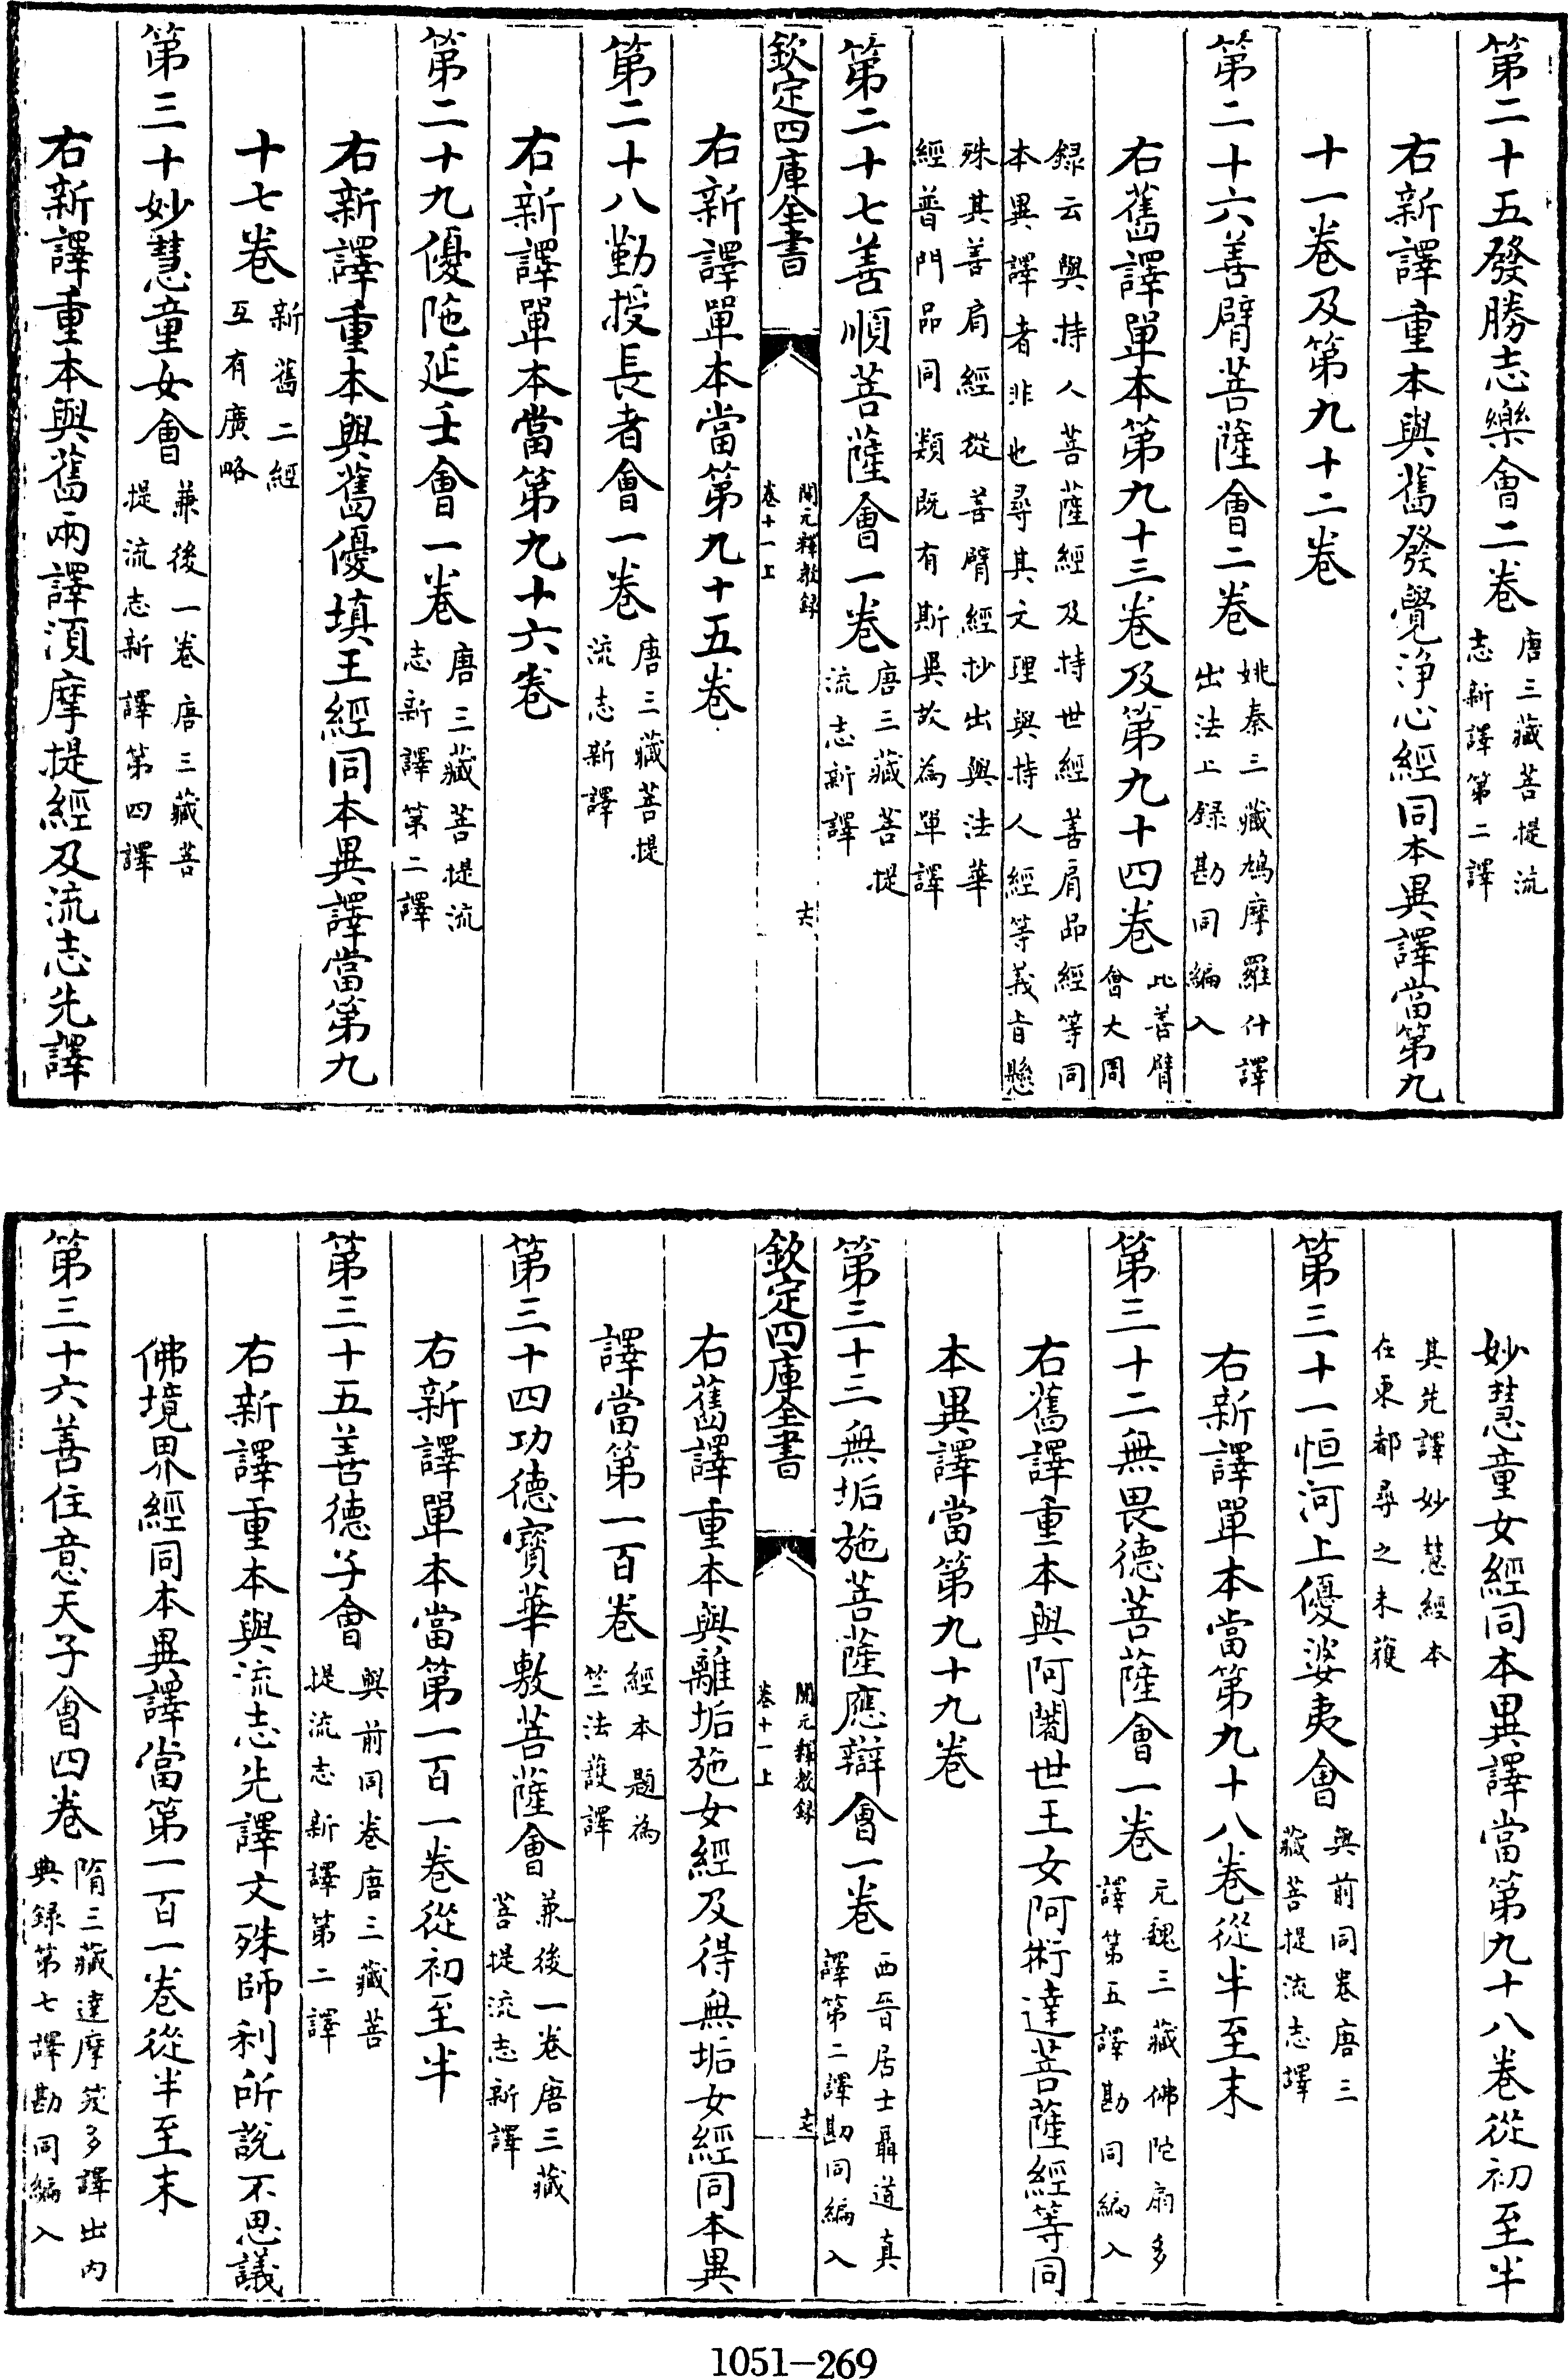 第二十五發勝志樂會二卷唐三藏菩提流志新譯第二譯
右新譯重本與舊發覺淨心經同本異譯當第九
十一卷及第九十二卷
第二十六善臂菩薩會二卷姚秦三藏鳩摩羅什譯出法上録勘同編入
右舊譯單本第九十三卷及第九十四卷此善臂會大周
録云與持人菩薩經及持世經善肩品經等同本異譯者非也尋其文理與持人經等義旨懸
殊其善肩經從善臂經抄出與法華經普門品同類既有斯異故為單譯
第二十七善順菩薩會一卷唐三藏菩提流志新譯
欽定四庫全書 開元釋教録卷十一上 十六
右新譯單本當第九十五卷
第二十八勤授長者會一卷唐三藏菩提流志新譯
右新譯單本當第九十六卷
第二十九優陁延王會一卷唐三藏菩提流志新譯第二譯
右新譯重本與舊優填王經同本異譯當第九
十七卷新舊二經互有廣略
第三十妙慧童女會兼後一卷唐三藏菩提流志新譯第四譯
右新譯重本與舊兩譯湏摩提經及流志先譯
妙慧童女經同本異譯當第九十八卷從初至半
其先譯妙慧經本在東都尋之未獲
第三十一恒河上優婆夷會與前同卷唐三藏菩提流志譯
右新譯單本當第九十八卷從半至末
第三十二無畏德菩薩會一卷元魏三藏佛陀扇多譯第五譯勘同編入
右舊譯重本與阿闍世王女阿術達菩薩經等同
本異譯當第九十九卷
第三十三無垢施菩薩應辯會一卷西晉居士聶道真譯第二譯勘同編入
欽定四庫全書 開元釋教録卷十一上 十七
右舊譯重本與離垢施女經及得無垢女經同本異
譯當第一百卷經本題為竺法護譯
第三十四功德寶華敷菩薩會兼後一卷唐三藏菩提流志新譯
右新譯單本當第一百一卷從初至半
第三十五善德天子會與前同卷唐三藏菩提流志新譯第二譯
右新譯重本與流志先譯文殊師利所說不思議
佛境界經同本異譯當第一百一卷從半至末
第三十六善住意天子會四卷隋三藏達摩笈多譯出内典録第七譯勘同編入
1051-269